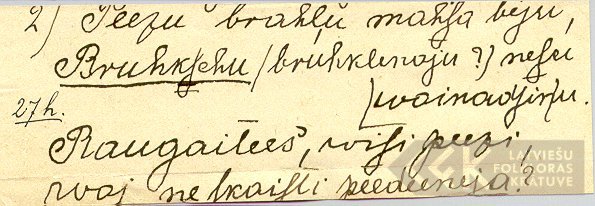 2) Peezu brahļu mahsa biju,
Bruhkschu /bruhklenaju?/ nesu
/wainadziņu.
27h.
Raugaitees, wisi peezi,
waj ne skaisti peedereja?
LATVIEŠU
FOLKLORAS
KRĀTUVE